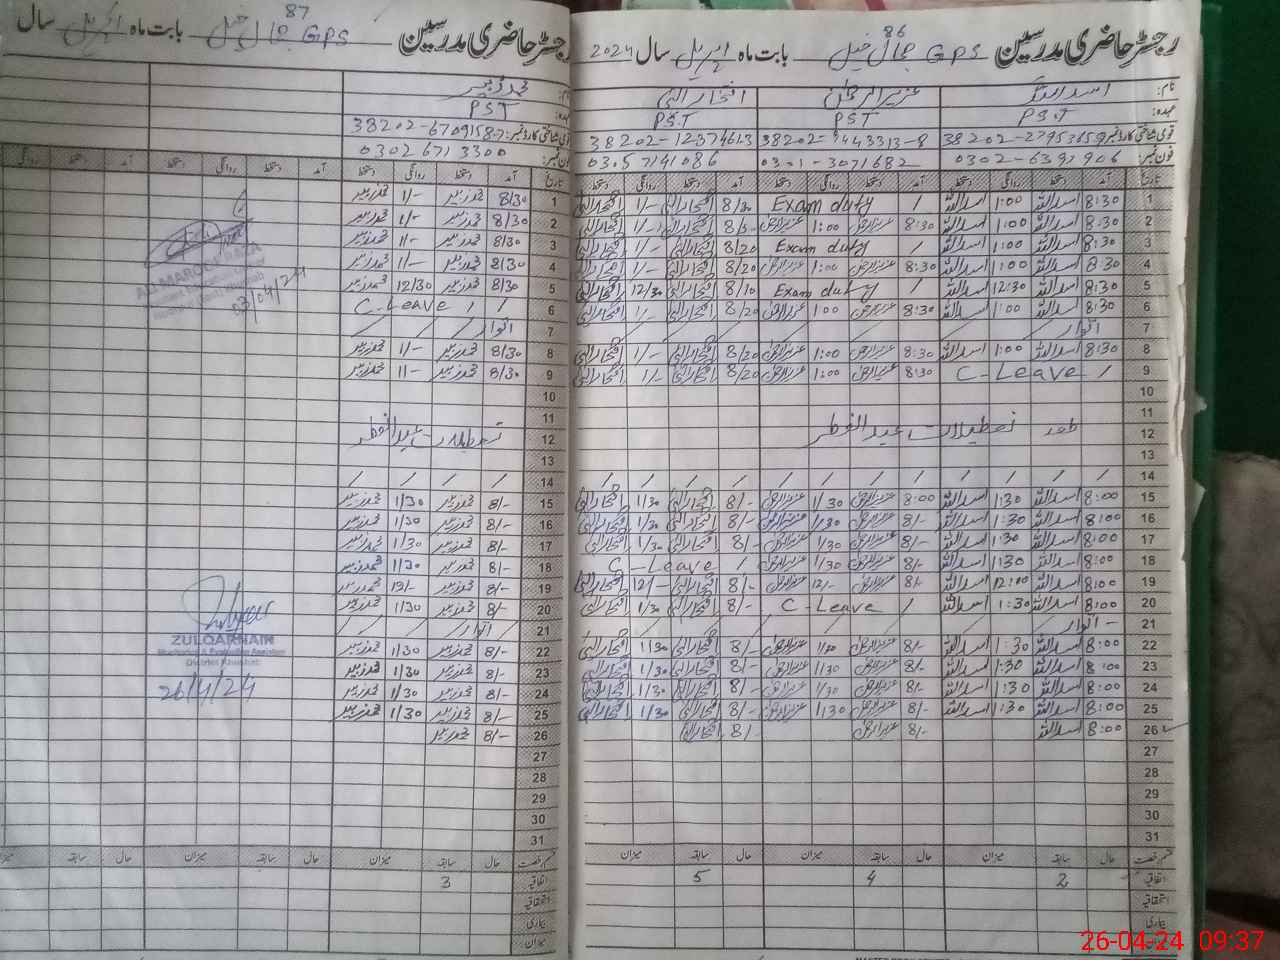 رجسٹر حاضری مدرسین GPS جمال خیل 86 بابت ماہ اپریل سال 2024
نام: اسداللہ عزیزالرحمٰن افتخارالہٰی
عہدہ: PST PST PST
قومی شناختی کارڈ نمبر: 38202-12374613
فون نمبر: 0301-3071682 03057141086
تاریخ آمد دستخط روانگی دستخط آمد دستخط روانگی دستخط آمد دستخط روانگی دستخط
1 8:30 اسداللہ 1:00 اسداللہ / Exam duty 8/30 افتخارالہٰی 1/- افتخارالہٰی
2 8:30 اسداللہ 1:00 اسداللہ 8:30 عزیزالرحمٰن 1:00 عزیزالرحمٰن افتخارالہٰی 1/- افتخارالہٰی
3 8:30 اسداللہ 1:00 اسداللہ / Exam duty 8/20 افتخارالہٰی 1/- افتخارالہٰی
4 8:30 اسداللہ 1:00 اسداللہ 8:30 عزیزالرحمٰن 1:00 عزیزالرحمٰن 8/20 افتخارالہٰی 1/- افتخارالہٰی
5 8:30 اسداللہ 12:30 اسداللہ / Exam duty 8/10 افتخارالہٰی 12/30 افتخارالہٰی
6 8:30 اسداللہ 1:00 اسداللہ 8:30 عزیزالرحمٰن 1:00 عزیزالرحمٰن 8/20 افتخارالہٰی 1/- افتخارالہٰی
7 اتوار
8 8:30 اسداللہ 1:00 اسداللہ 8:30 عزیزالرحمٰن 1:00 عزیزالرحمٰن 8/20 افتخارالہٰی 1/- افتخارالہٰی
9 / C-Leave 8:30 عزیزالرحمٰن 1:00 عزیزالرحمٰن 8/20 افتخارالہٰی 1/- افتخارالہٰی
10
11
12 تعطیلات عیدالفطر
13
14 / / / / / / / / / / /
15 8:00 اسداللہ 1:30 اسداللہ 8:00 عزیزالرحمٰن 1/30 عزیزالرحمٰن 8/- افتخارالہٰی 1/30 افتخارالہٰی
16 8:00 اسداللہ 1:30 اسداللہ 8/- عزیزالرحمٰن 1/30 عزیزالرحمٰن 8/- افتخارالہٰی 1/30 افتخارالہٰی
17 8:00 اسداللہ 1:30 اسداللہ 8/- عزیزالرحمٰن 1/30 عزیزالرحمٰن 8/- افتخارالہٰی 1/30 افتخارالہٰی
18 8:00 اسداللہ 1:30 اسداللہ 8/- عزیزالرحمٰن 1/30 عزیزالرحمٰن / C-Leave
19 8:00 اسداللہ 12:00 اسداللہ 8/- عزیزالرحمٰن 12/- عزیزالرحمٰن 8/- افتخارالہٰی 12/- افتخارالہٰی
20 8:00 اسداللہ 1:30 اسداللہ / C-Leave 8/- افتخارالہٰی 1/30 افتخارالہٰی
21 اتوار
22 8:00 اسداللہ 1:30 اسداللہ 8/- عزیزالرحمٰن 1/30 عزیزالرحمٰن 8/- افتخارالہٰی 1/30 افتخارالہٰی
23 8:00 اسداللہ 1:30 اسداللہ 8/- عزیزالرحمٰن 1/30 عزیزالرحمٰن 8/- افتخارالہٰی 1/30 افتخارالہٰی
24 8:00 اسداللہ 1:30 اسداللہ 8/- عزیزالرحمٰن 1/30 عزیزالرحمٰن 8/- افتخارالہٰی 1/30 افتخارالہٰی
25 8:00 اسداللہ 1:30 اسداللہ 8/- عزیزالرحمٰن 1/30 عزیزالرحمٰن 8/- افتخارالہٰی 1/30 افتخارالہٰی
26 8:00 اسداللہ 8/- عزیزالرحمٰن 8/- افتخارالہٰی
27
28
29
30
31
قسم رخصت حال سابقہ میزان حال سابقہ میزان حال سابقہ میزان
اتفاقیہ 2 4 5
استحقاقیہ
بیماری
میزان
رجسٹر حاضری مدرسین GPS جمال خیل 87 بابت ماہ اپریل سال
نام: محمد زبیر
عہدہ: PST
قومی شناختی کارڈ نمبر: 38202-6709158-7
فون نمبر: 0302 671 3300
تاریخ آمد دستخط روانگی دستخط آمد دستخط روانگی دستخط آمد دستخط روانگی
1 8/30 محمد زبیر 1/- محمد زبیر
2 8/30 محمد زبیر 1/- محمد زبیر
3 8/30 محمد زبیر 1/- محمد زبیر
4 8/30 محمد زبیر 1/- محمد زبیر
5 8/30 محمد زبیر 12/30 محمد زبیر
6 / / C-Leave
7 اتوار
8 8/30 محمد زبیر 1/- محمد زبیر
9 8/30 محمد زبیر 1/- محمد زبیر
10
11
12 تعطیلات عیدالفطر
13
14 / / / /
15 8/- محمد زبیر 1/30 محمد زبیر
16 8/- محمد زبیر 1/30 محمد زبیر
17 8/- محمد زبیر 1/30 محمد زبیر
18 8/- محمد زبیر 1/30 محمد زبیر
19 8/- محمد زبیر 12/- محمد زبیر
20 8/- محمد زبیر 1/30 محمد زبیر
21 اتوار
22 8/- محمد زبیر 1/30 محمد زبیر
23 8/- محمد زبیر 1/30 محمد زبیر
24 8/- محمد زبیر 1/30 محمد زبیر
25 8/- محمد زبیر 1/30 محمد زبیر
26 8/- محمد زبیر
27
28
29
30
31
قسم رخصت حال سابقہ میزان حال سابقہ میزان حال سابقہ میزان
اتفاقیہ 3
استحقاقیہ
بیماری
میزان
03/04/24
ZULQARNAIN
Monitoring & Evaluation Assistant
District Khushab
26/4/24
26-04-24 09:37